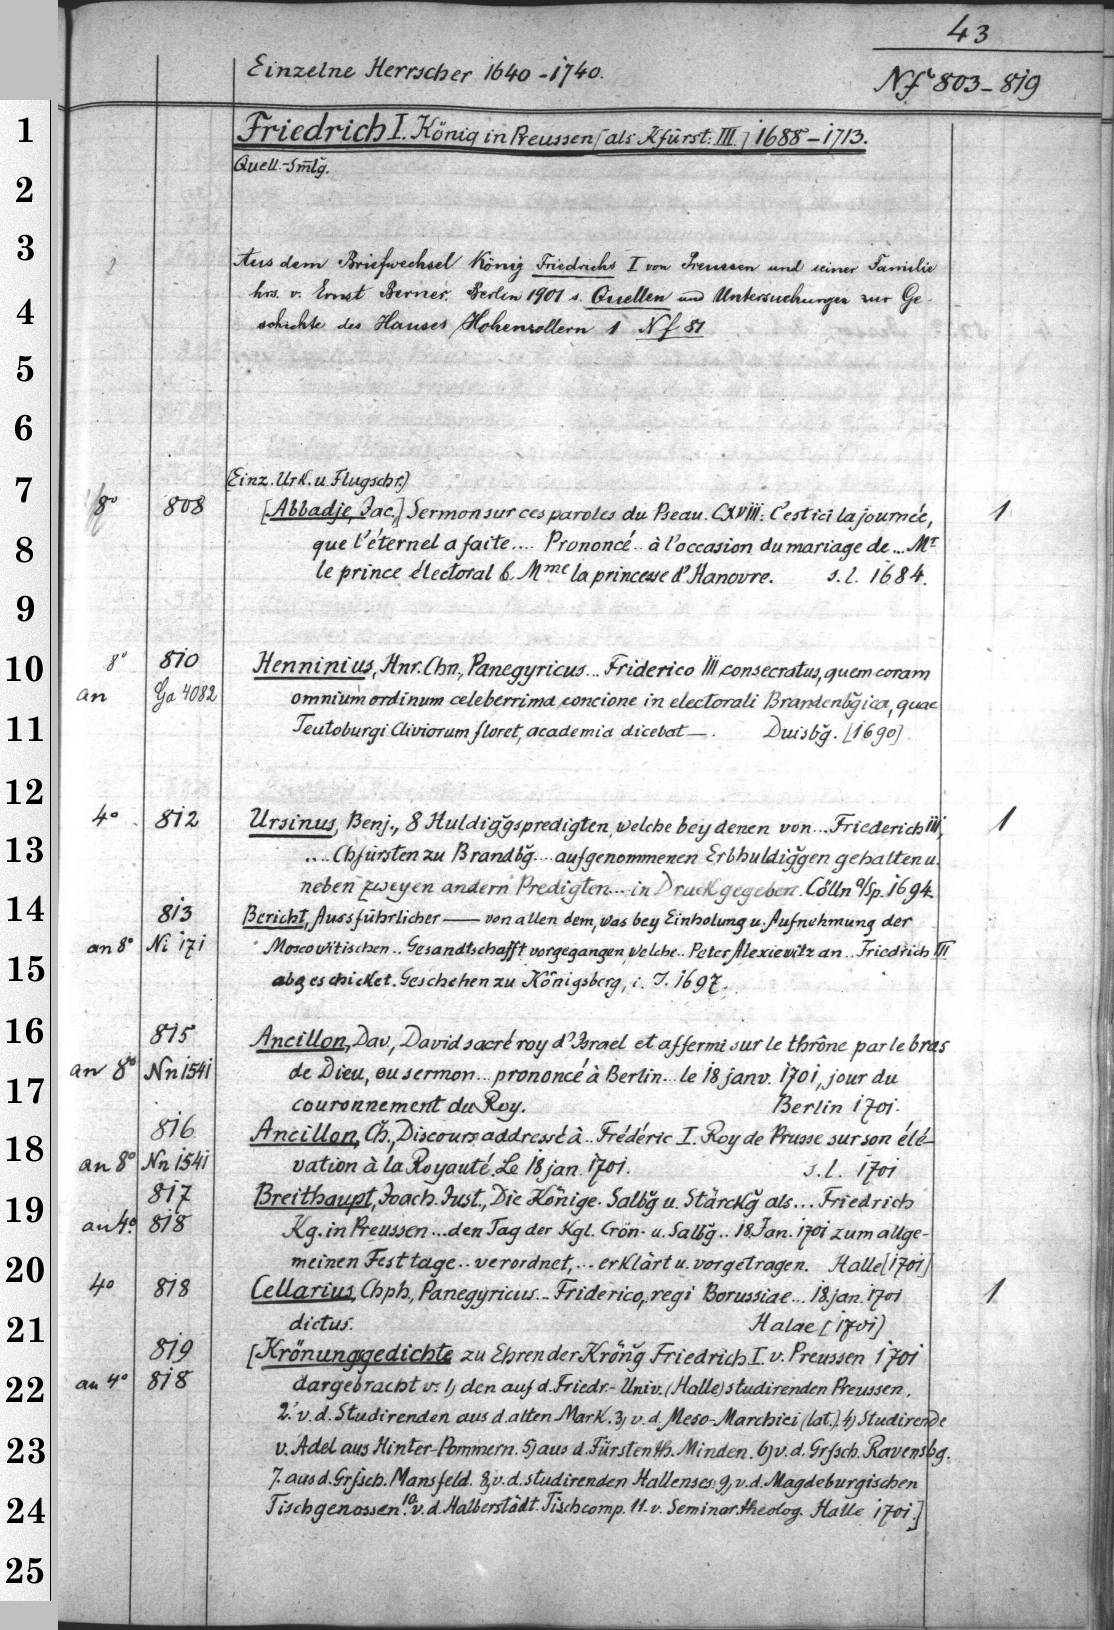 43
Einzelne Herrscher 1640-1740.
Nf 803-819
Friedrich I. König in Preussen [als Kfürst: III.] 1688-1713.
Quell.-Smlg.
Aus dem Briefwechsel König Friedrichs I von Preussen und seiner Familie
hrs. v. Ernst Berner. Berlin 1901 s. Quellen und Untersuchungen zur Ge-
schichte des Hauses Hohenzollern 1 Nf 81
(Einz. Urk. u. Flugschr.)
8° 808 [Abbadie, Jac.,] Sermon sur ces paroles du Pseau. CXVIII: C'est ici la journée, 1
que l'éternel a faite.... Prononcé.. à l'occasion du mariage de... Mr
le prince électoral & Mme la princesse d'Hanovre. s. l. 1684.
8° 810 Henninius, Hnr. Chn., Panegyricus... Friderico III consecratus, quem coram
an Ga 4082 omnium ordinum celeberrima concione in electorali Brandenbg̃ica, quae
Teutoburgi Cliviorum floret, academia dicebat —. Duisbg̃. [1690].
4° 812 Ursinus, Benj., 8 Huldigg̃spredigten, welche bey denen von... Friederich III, 1
.... Chfürsten zu Brandbg̃.... aufgenommenen Erbhuldigg̃en gehalten u.
neben zweyen andern Predigten... in Druck gegeben. Cölln a/Sp. 1694.
813 Bericht, Aussführlicher — von allen dem, was bey Einholung u. Aufnehmung der
an 8° Ni 171 Moscowitischen.. Gesandtschafft vorgegangen, welche.. Peter Alexiewitz an.. Friedrich III
abgeschicket. Geschehen zu Königsberg, i. J. 1697.
815 Ancillon, Dav., David sacré roy d'Israel et affermi sur le thrône par le bras
an 8° Nn 1541 de Dieu, ou sermon... prononcé à Berlin... le 18 janv. 1701, jour du
couronnement du Roy. Berlin 1701.
816 Ancillon, Ch., Discours addressé à.. Frédéric I. Roy de Prusse sur son élé-
an 8° Nn 1541 vation à la Royauté. Le 18 jan. 1701. s. l. 1701
817 Breithaupt, Joach. Just., Die Könige. Salbg̃ u. Stärckg̃ als... Friedrich
an 4°. 818 Kg. in Preussen... den Tag der Kgl. Crön- u. Salbg̃.. 18. Jan. 1701 zum allge-
meinen Festtage.. verordnet,... erklärt u. vorgetragen. Halle [1701]
4° 818 Cellarius, Chph., Panegyricus... Friderico, regi Borussiae... 18. jan. 1701 1
dictus. Halae [1701]
819 [Krönungsgedichte zu Ehren der Kröng̃ Friedrich I. v. Preussen 1701
an 4° 818 dargebracht v. 1) den auf d. Friedr.-Univ. (Halle) studirenden Preussen.
2. v. d. Studirenden aus d. alten Mark. 3) v. d. Meso-Marchici (lat.). 4) Studirende
v. Adel aus Hinter-Pommern. 5) aus d. Fürstenth. Minden. 6) v. d. Grfsch. Ravensbg.
7. aus d. Grfsch. Mansfeld. 8) v. d. studirenden Hallenses. 9) v. d. Magdeburgischen
Tischgenossen. 10. v. d. Halberstädt. Tischcomp. 11. v. Seminar. theolog. Halle 1701.]
1
2
3
4
5
6
7
8
9
10
11
12
13
14
15
16
17
18
19
20
21
22
23
24
25